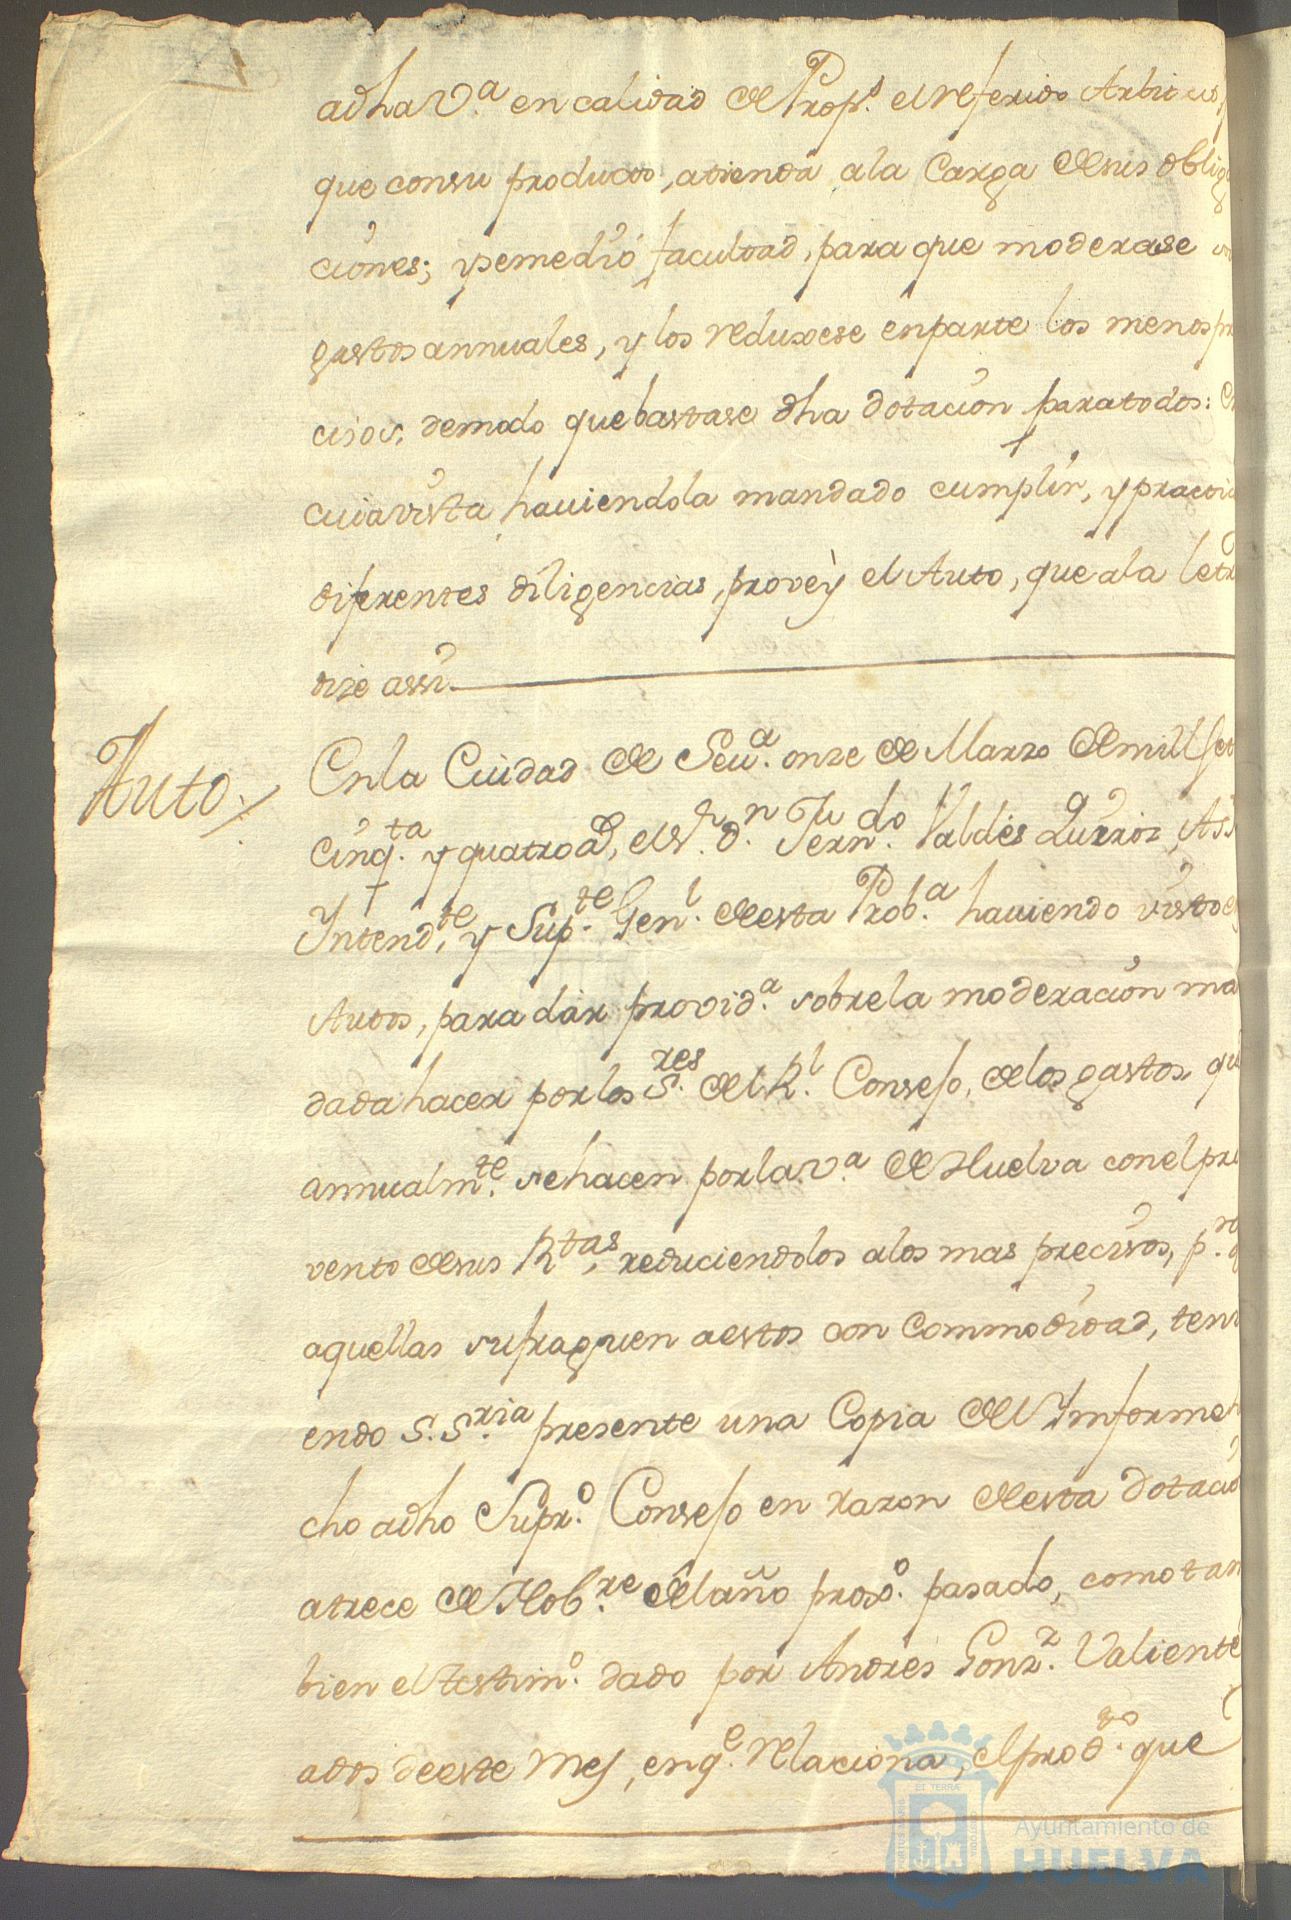 adha V.ª en calidad de Prop.s el referido Arbi
que con su producto, atienda a la Carga de sus oblig
ciones; y se me dió facultad, para que moderase
gastos annuales, y los reduxese en parte los menos pr
cisos, de modo que bastase dha dotacion para todos:
cuia vista haviendola mandado cumplir, y practic
diferentes diligencias, proveÿ el Auto, que a la letr
dize assi
Auto
En la Ciudad de Seu.ª onze de Marzo de mill set
cinq.ta y quatro a.s, el s.r d.n Fern.do Valdés Quirós, As
Yntend.te, y Sup.te Gen.l de esta Prob.ª haviendo visto e
Autos, para dár provid.ª sobre la moderacion ma
dada hacer por los S.res del R.l Consejo, de los gastos qu
annualm.te se hacen por la V.ª de Huelva con el pro
vento de sus R.tas, reduciendolos a los mas precisos, p.r q
aquellas sufraguen a estos con Commodidad, teni
endo S. S.ria presente una Copia del Informe
cho a dho Supr.º Consejo en razon de esta dotacio
a trece de Nob.re del año prox.º pasado, como tam
bien el testim.º dado por Andrés Gonz.z Valiente
a dos de este Mes, en q.e relaciona, el prod.to que
ET TERRÆ
Ayuntamiento de
HUELVA